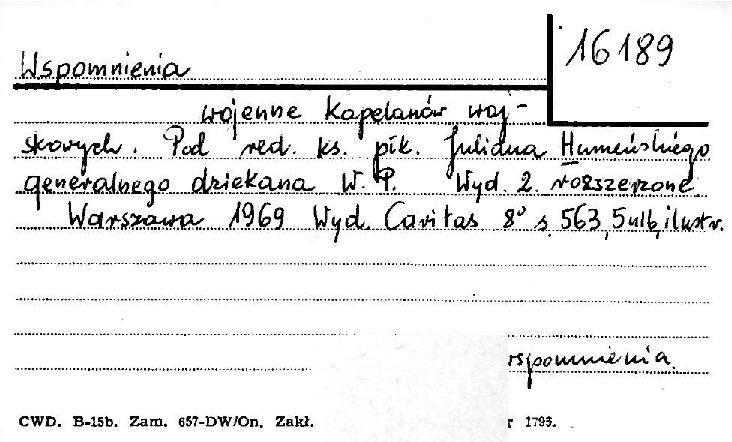 16189
Wspomnienia
wojenne kapelanów woj-
skowych. Pod red. ks. płk. Juliana Humeńskiego
generalnego dziekana W. P. Wyd. 2. rozszerzone.
Warszawa 1969 Wyd. Caritas 8° s. 563, 5 nlb, ilustr.
wspomnienia.
CWD. B-15b. Zam. 657-DW/On. Zakł. r 1793.